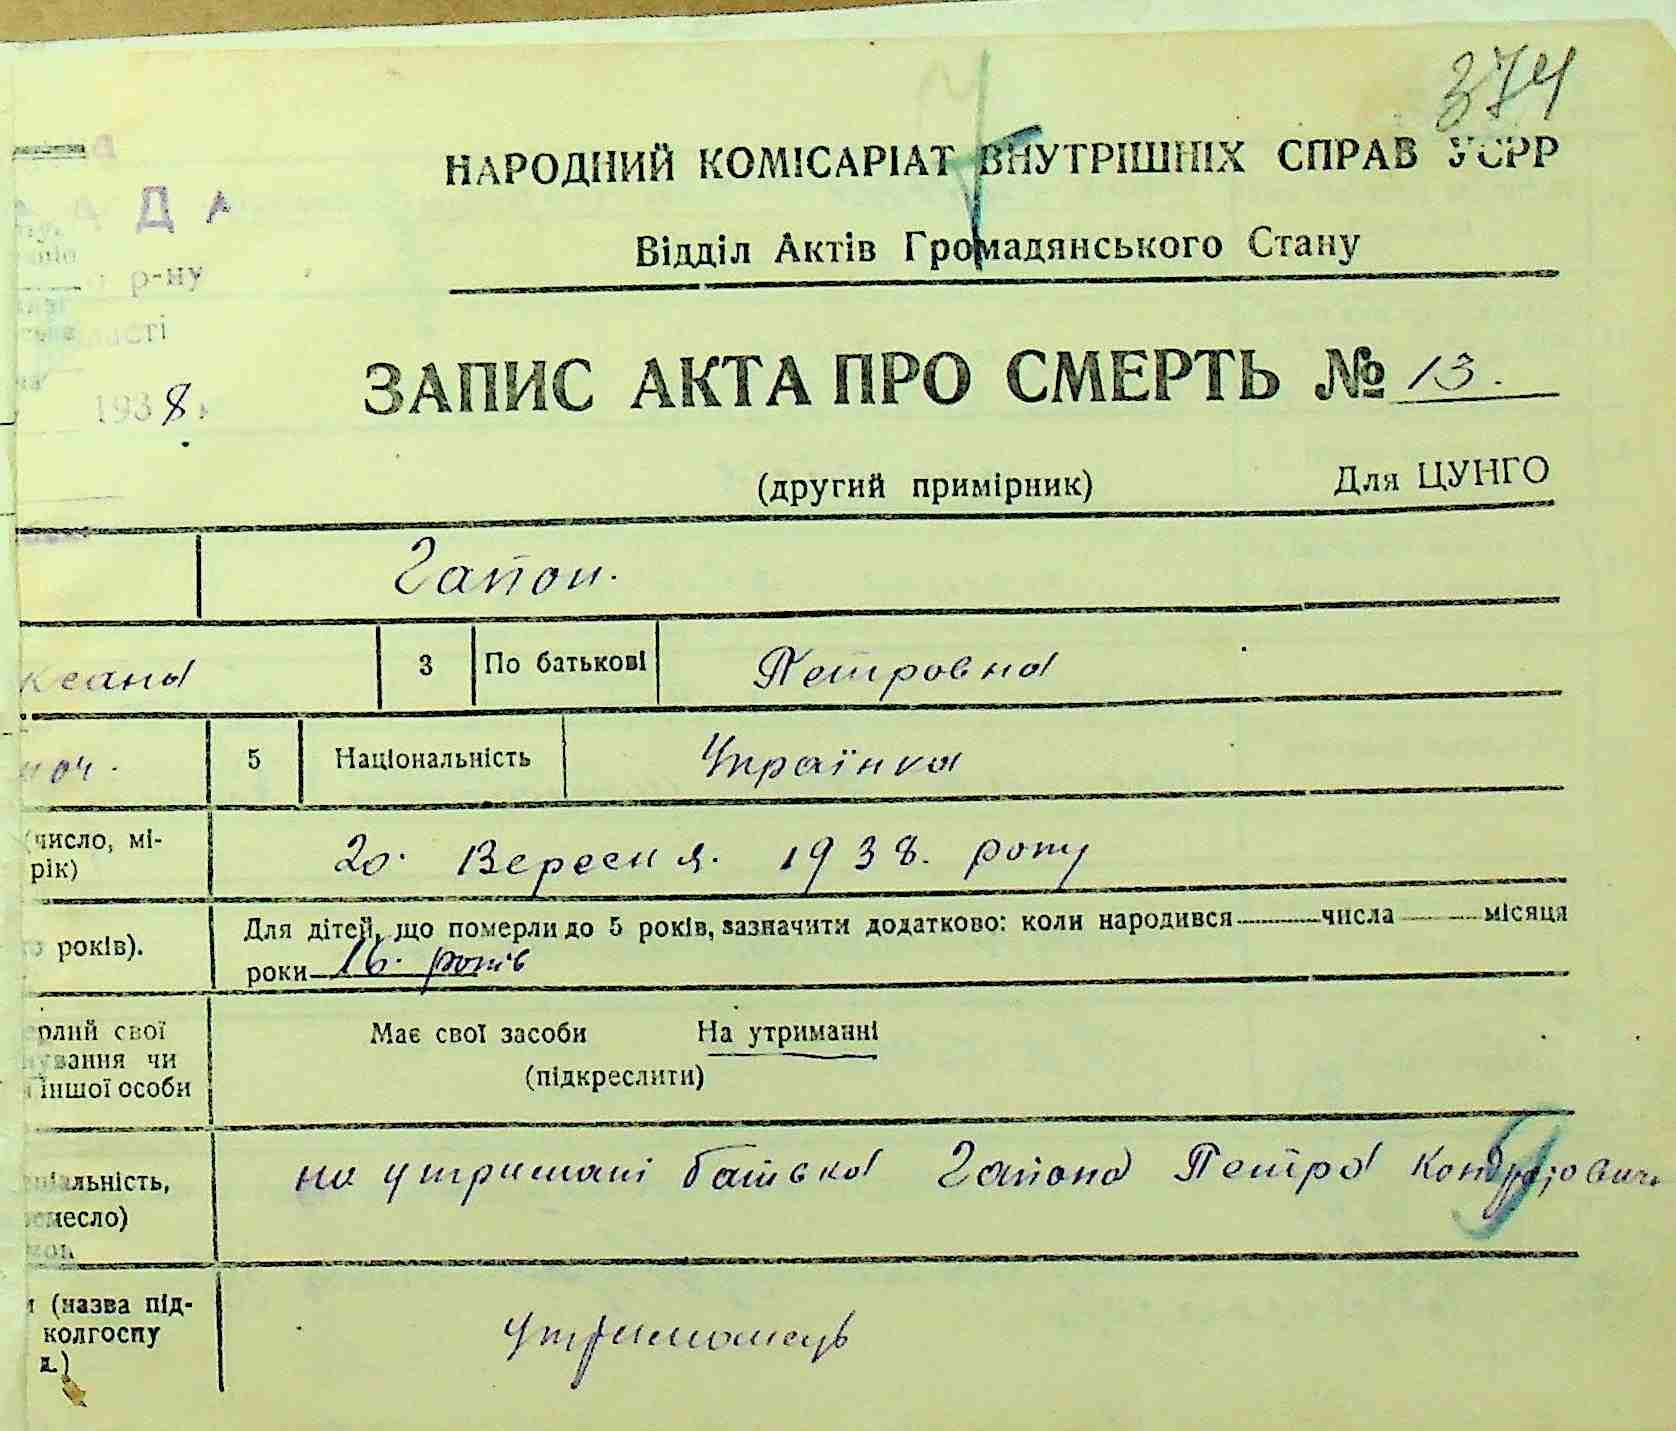 374
НАРОДНИЙ КОМІСАРІАТ ВНУТРІШНІХ СПРАВ УСРР
АДА
Відділ Актів Громадянського Стану
р-ну
ЗАПИС АКТА ПРО СМЕРТЬ № 13.
1938 р.
(другий примірник) Для ЦУНГО
Гапон.
ксана 3 По батькові Петровна
ноч. 5 Національність Українка
(число, мі-
рік)
20. Вересня. 1938. року
років).
Для дітей, що померли до 5 років, зазначити додатково: коли народився числа місяця
роки 16. років
ерлий свої
ування чи
іншої особи
Має свої засоби На утриманні
(підкреслити)
іальність,
емесло)
на утримані батька Гапона Петра Кондратович
(назва під-
колгоспу
д.)
утриманець